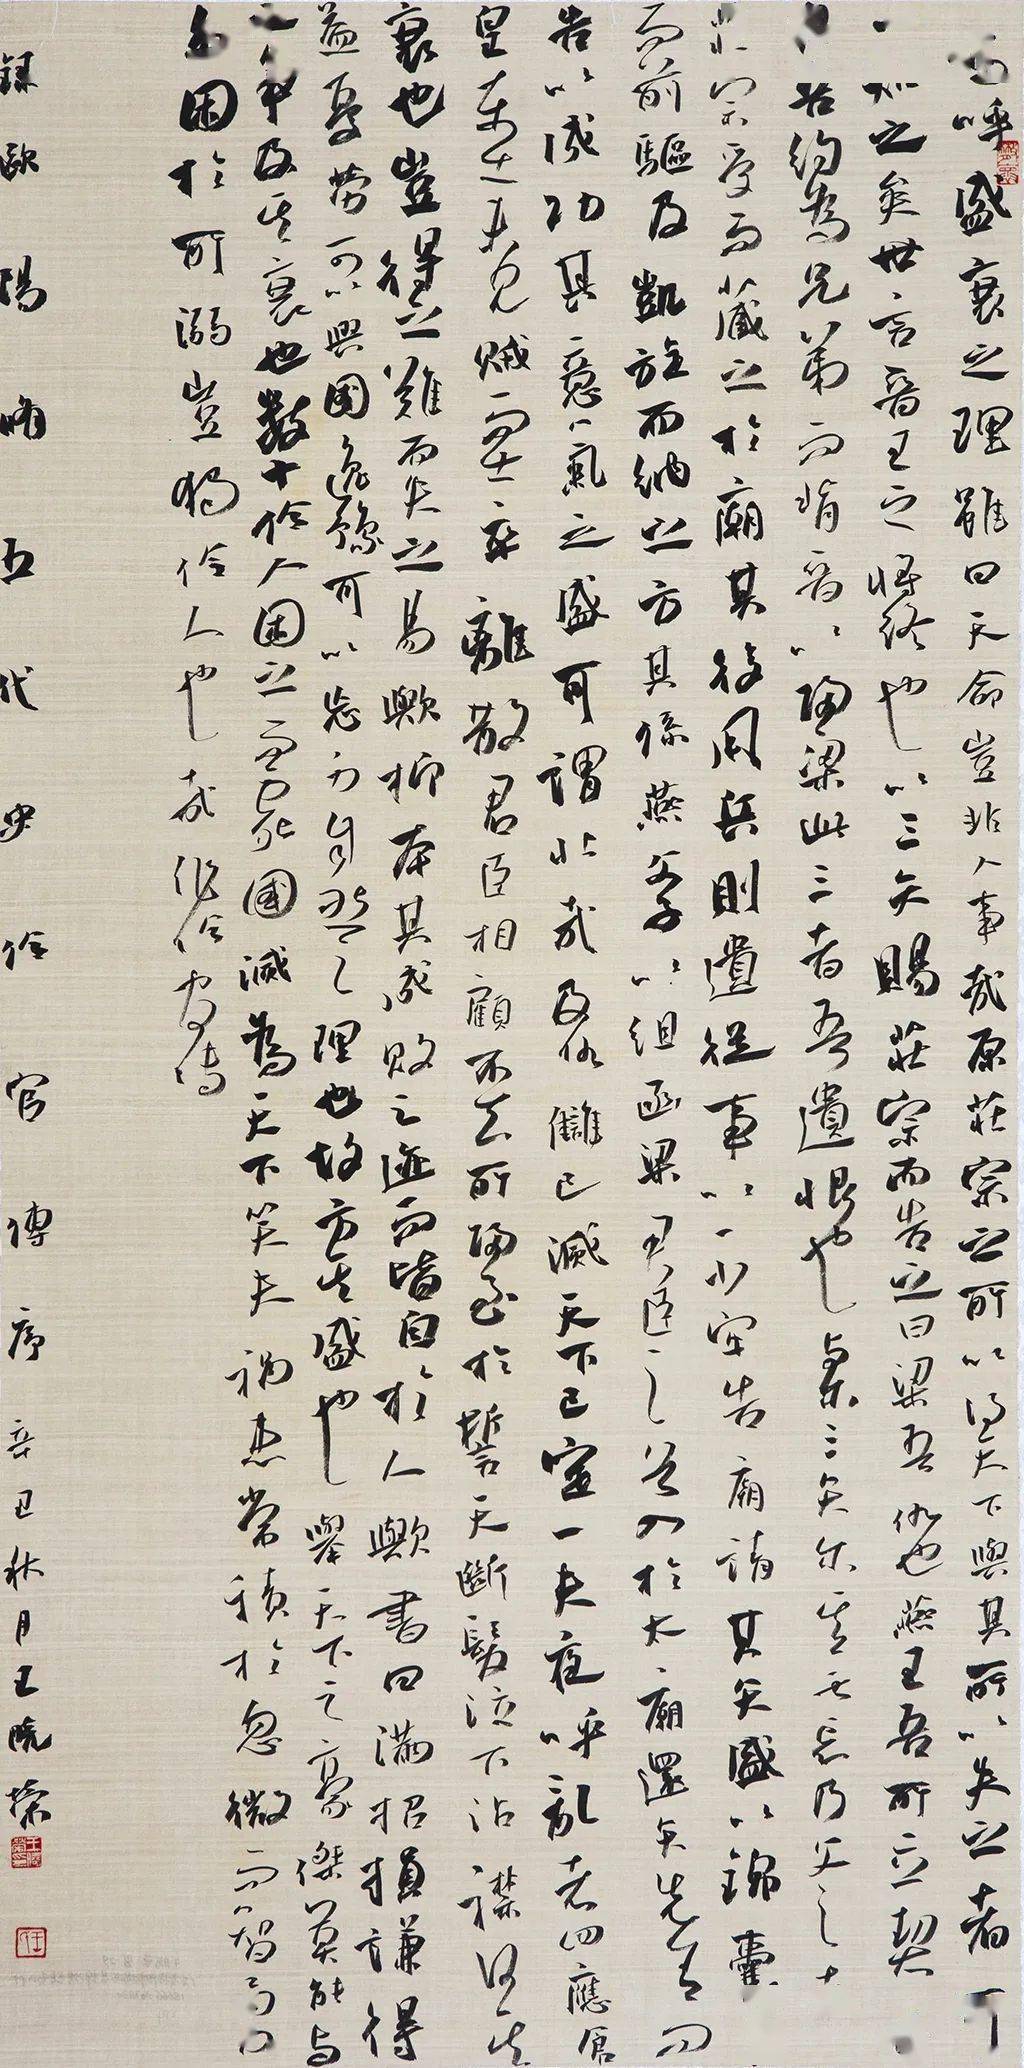 嗚呼盛衰之理雖曰天命豈非人事哉原莊宗之所以得天下與其所以失之者可
知之矣世言晉王之將終也以三矢賜莊宗而告之曰梁吾仇也燕王吾所立契
吾約為兄弟而背晉以歸梁此三者吾遺恨也與尔三矢尔其無忘乃父之
莊宗受而藏之於廟其後用兵則遣從事以一少牢告廟請其矢盛以錦囊
而前驅及凱旋而納之方其係燕父子以組函梁君臣之首入於太廟還矢先王而
告以成功其意氣之盛可謂壯哉及仇讎已滅天下已定一夫夜呼亂者四應倉
皇東出未見賊而士卒離散君臣相顧不知所歸至於誓天斷髮泣下沾襟何其
衰也豈得之難而失之易歟抑本其成敗之迹而皆自於人歟書曰滿招損謙得
益憂勞可以興國逸豫可以忘身自然之理也故方其盛也舉天下之豪傑莫能與
之爭及其衰也數十伶人困之而身死國滅為天下笑夫禍患常積於忽微而智勇
多困於所溺豈獨伶人也哉作伶官傳
錄歐陽脩五代史伶官傳序 辛巳秋月王曉榮